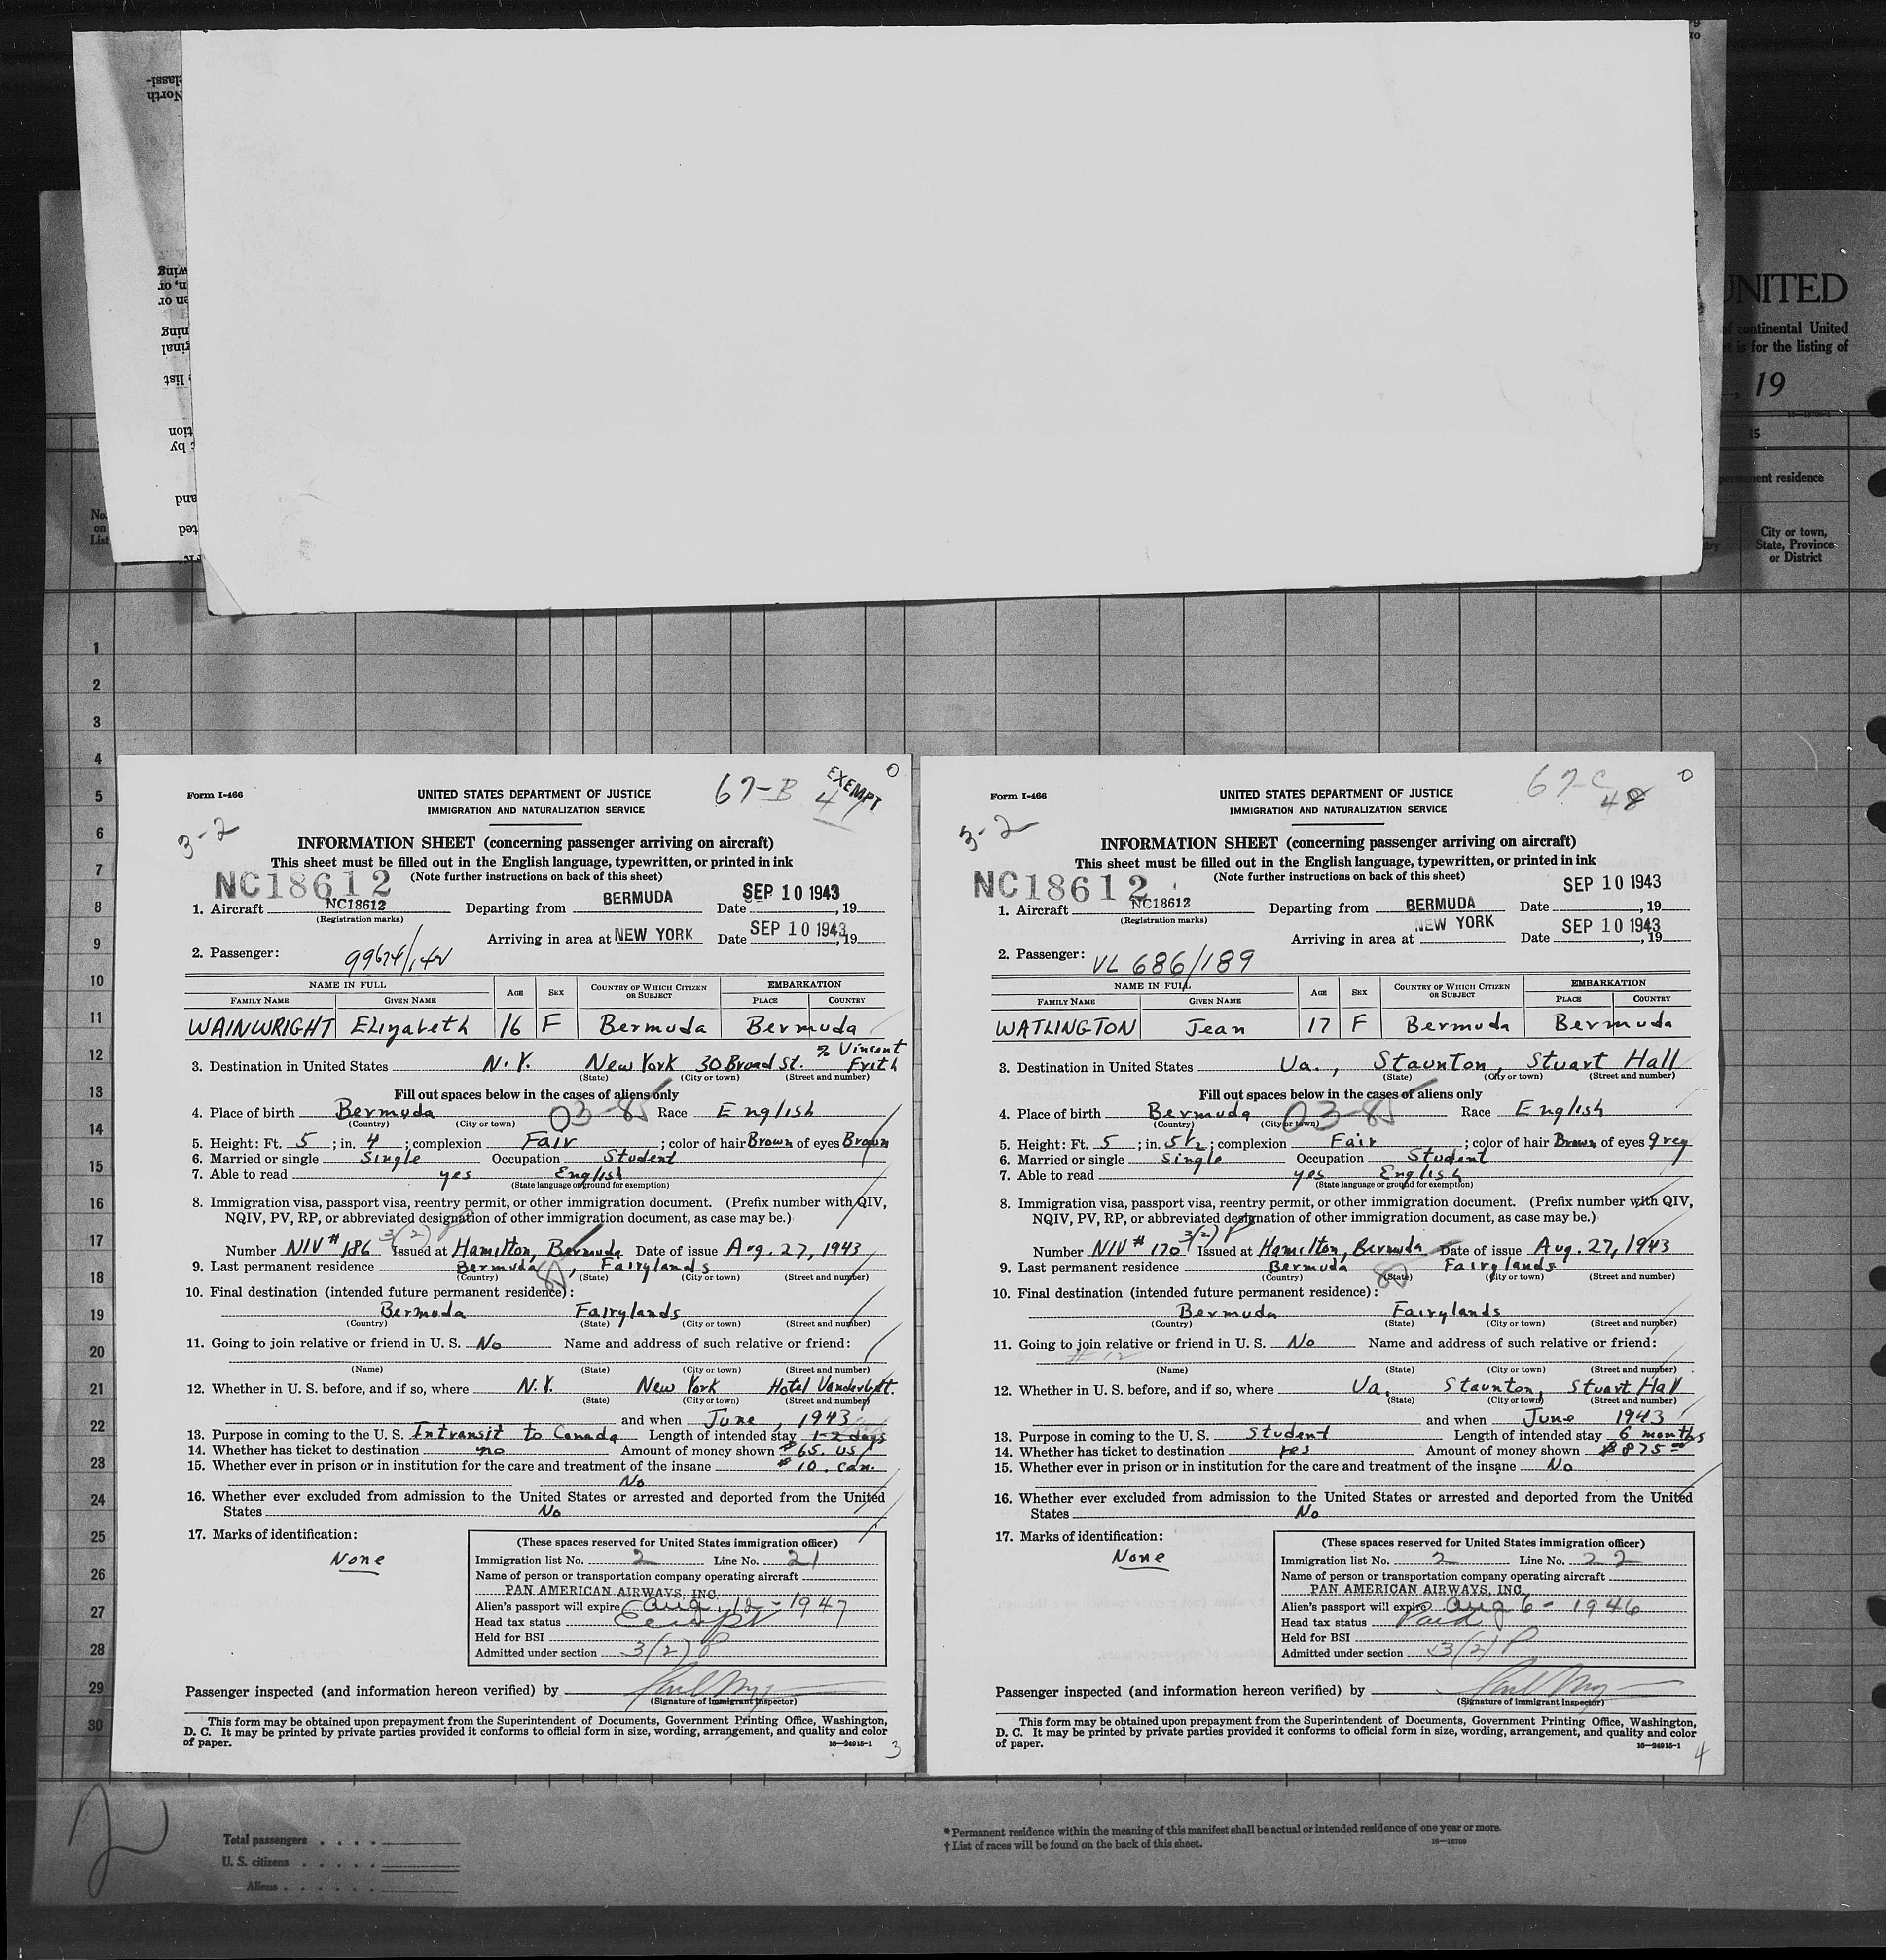 UNITED
of continental United
is for the listing of
, 19
15
permanent residence
No.
on
List
City or town,
State, Province
or District
1
2
3
4
5
6
7
8
9
10
11
12
13
14
15
16
17
18
19
20
21
22
23
24
25
26
27
28
29
30
Form I-466
UNITED STATES DEPARTMENT OF JUSTICE
IMMIGRATION AND NATURALIZATION SERVICE
67-B
EXEMPT
4
0
3-2
INFORMATION SHEET (concerning passenger arriving on aircraft)
This sheet must be filled out in the English language, typewritten, or printed in ink
(Note further instructions on back of this sheet)
NC18612
1. Aircraft NC18612 Departing from BERMUDA Date SEP 10 1943, 19
(Registration marks)
Arriving in area at NEW YORK Date SEP 10 1943, 19
2. Passenger:
NAME IN FULL AGE SEX COUNTRY OF WHICH CITIZEN OR SUBJECT EMBARKATION
FAMILY NAME GIVEN NAME PLACE COUNTRY
WAINWRIGHT Elizabeth 16 F Bermuda Bermuda
3. Destination in United States N.Y. New York 30 Broad St. % Vincent Frith
(State) (City or town) (Street and number)
Fill out spaces below in the cases of aliens only
4. Place of birth Bermuda 03-85 Race English
(Country) (City or town)
5. Height: Ft. 5; in. 4; complexion Fair; color of hair Brown of eyes Brown
6. Married or single Single Occupation Student
7. Able to read yes English
(State language or ground for exemption)
8. Immigration visa, passport visa, reentry permit, or other immigration document. (Prefix number with QIV,
NQIV, PV, RP, or abbreviated designation of other immigration document, as case may be.)
3(2) P
Number NIV # 186 Issued at Hamilton, Bermuda Date of issue Aug. 27, 1943
9. Last permanent residence Bermuda 85, Fairylands
(Country) (State) (City or town) (Street and number)
10. Final destination (intended future permanent residence):
Bermuda Fairylands
(Country) (State) (City or town) (Street and number)
11. Going to join relative or friend in U. S. No Name and address of such relative or friend:
(Name) (State) (City or town) (Street and number)
12. Whether in U. S. before, and if so, where N.Y. New York Hotel Vanderbilt.
(State) (City or town) (Street and number)
and when June, 1943
13. Purpose in coming to the U. S. Intransit to Canada Length of intended stay 1-2 days
14. Whether has ticket to destination no Amount of money shown $65. US
15. Whether ever in prison or in institution for the care and treatment of the insane $10. can.
No
16. Whether ever excluded from admission to the United States or arrested and deported from the United
States No
17. Marks of identification:
None
(These spaces reserved for United States immigration officer)
Immigration list No. 2 Line No. 21
Name of person or transportation company operating aircraft
PAN AMERICAN AIRWAYS, INC.
Alien's passport will expire Aug. 12 - 1947
Head tax status Exempt
Held for BSI
Admitted under section 3(2) P
Passenger inspected (and information hereon verified) by
(Signature of Immigrant Inspector)
This form may be obtained upon prepayment from the Superintendent of Documents, Government Printing Office, Washington,
D. C. It may be printed by private parties provided it conforms to official form in size, wording, arrangement, and quality and color
of paper.
16—24915-1
3
Form I-466
UNITED STATES DEPARTMENT OF JUSTICE
IMMIGRATION AND NATURALIZATION SERVICE
67-C
48
0
3-2
INFORMATION SHEET (concerning passenger arriving on aircraft)
This sheet must be filled out in the English language, typewritten, or printed in ink
(Note further instructions on back of this sheet)
NC18612
1. Aircraft NC18612 Departing from BERMUDA Date SEP 10 1943, 19
(Registration marks)
Arriving in area at NEW YORK Date SEP 10 1943, 19
2. Passenger: VL 686/189
NAME IN FULL AGE SEX COUNTRY OF WHICH CITIZEN OR SUBJECT EMBARKATION
FAMILY NAME GIVEN NAME PLACE COUNTRY
WATLINGTON Jean 17 F Bermuda Bermuda
3. Destination in United States Va., Staunton, Stuart Hall
(State) (City or town) (Street and number)
Fill out spaces below in the cases of aliens only
4. Place of birth Bermuda 03-85 Race English
(Country) (City or town)
5. Height: Ft. 5; in. 5½; complexion Fair; color of hair Brown of eyes grey
6. Married or single Single Occupation Student
7. Able to read yes English
(State language or ground for exemption)
8. Immigration visa, passport visa, reentry permit, or other immigration document. (Prefix number with QIV,
NQIV, PV, RP, or abbreviated designation of other immigration document, as case may be.)
3(2) P
Number NIV # 170 Issued at Hamilton, Bermuda Date of issue Aug. 27, 1943
9. Last permanent residence Bermuda 85 Fairylands
(Country) (State) (City or town) (Street and number)
10. Final destination (intended future permanent residence):
Bermuda Fairylands
(Country) (State) (City or town) (Street and number)
11. Going to join relative or friend in U. S. No Name and address of such relative or friend:
# 12
(Name) (State) (City or town) (Street and number)
12. Whether in U. S. before, and if so, where Va. Staunton, Stuart Hall
(State) (City or town) (Street and number)
and when June 1943
13. Purpose in coming to the U. S. Student Length of intended stay 6 months
14. Whether has ticket to destination yes Amount of money shown $875.00
15. Whether ever in prison or in institution for the care and treatment of the insane No
16. Whether ever excluded from admission to the United States or arrested and deported from the United
States No
17. Marks of identification:
None
(These spaces reserved for United States immigration officer)
Immigration list No. 2 Line No. 22
Name of person or transportation company operating aircraft
PAN AMERICAN AIRWAYS, INC.
Alien's passport will expire Aug 6 - 1946
Head tax status Paid
Held for BSI
Admitted under section 3(2) P
Passenger inspected (and information hereon verified) by
(Signature of Immigrant Inspector)
This form may be obtained upon prepayment from the Superintendent of Documents, Government Printing Office, Washington,
D. C. It may be printed by private parties provided it conforms to official form in size, wording, arrangement, and quality and color
of paper.
16—24915-1
4
2
Total passengers . . . .
U. S. citizens . . . . .
Aliens . . . . . .
* Permanent residence within the meaning of this manifest shall be actual or intended residence of one year or more.
† List of races will be found on the back of this sheet.
16—18709